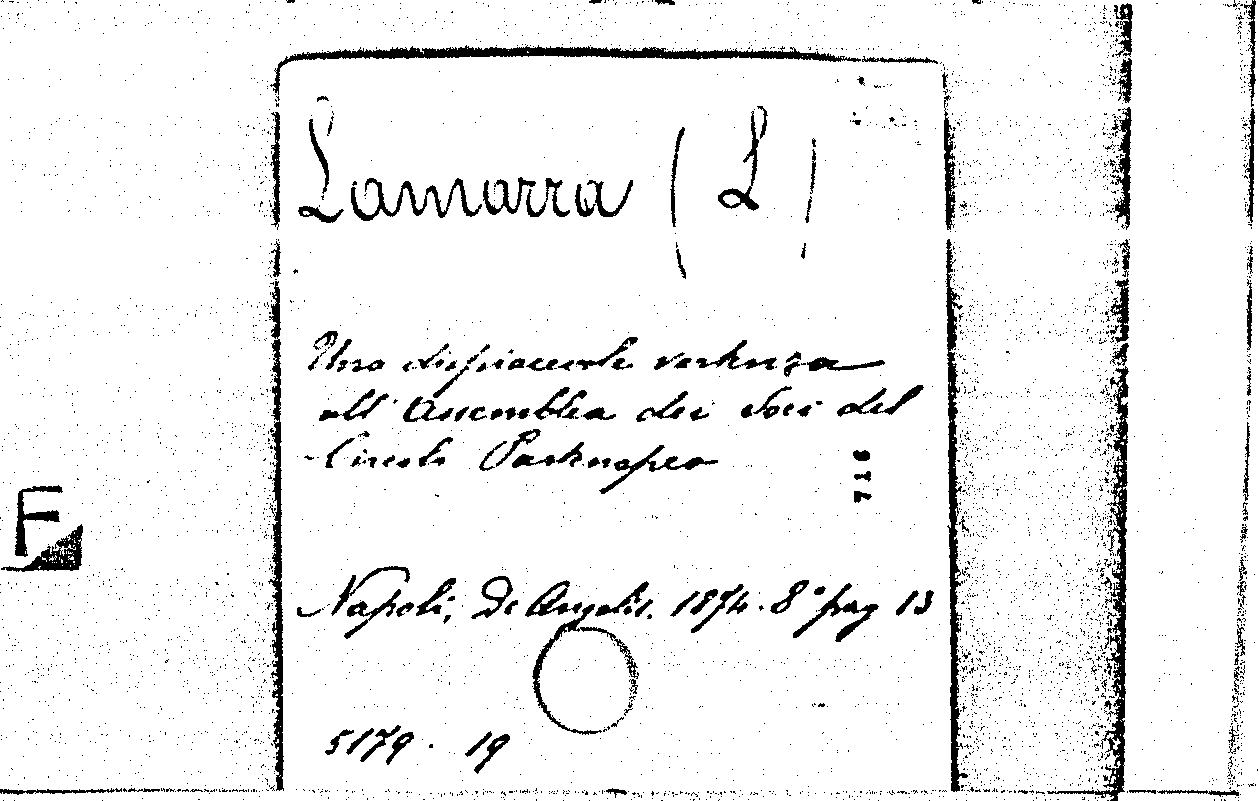 Lamarra (L)
Una dispiacente vertenza
all'Assemblea dei Soci del
Circolo Partenopeo
716
Napoli, De Angelis. 1874. 8° pag 13
5179. 19
F